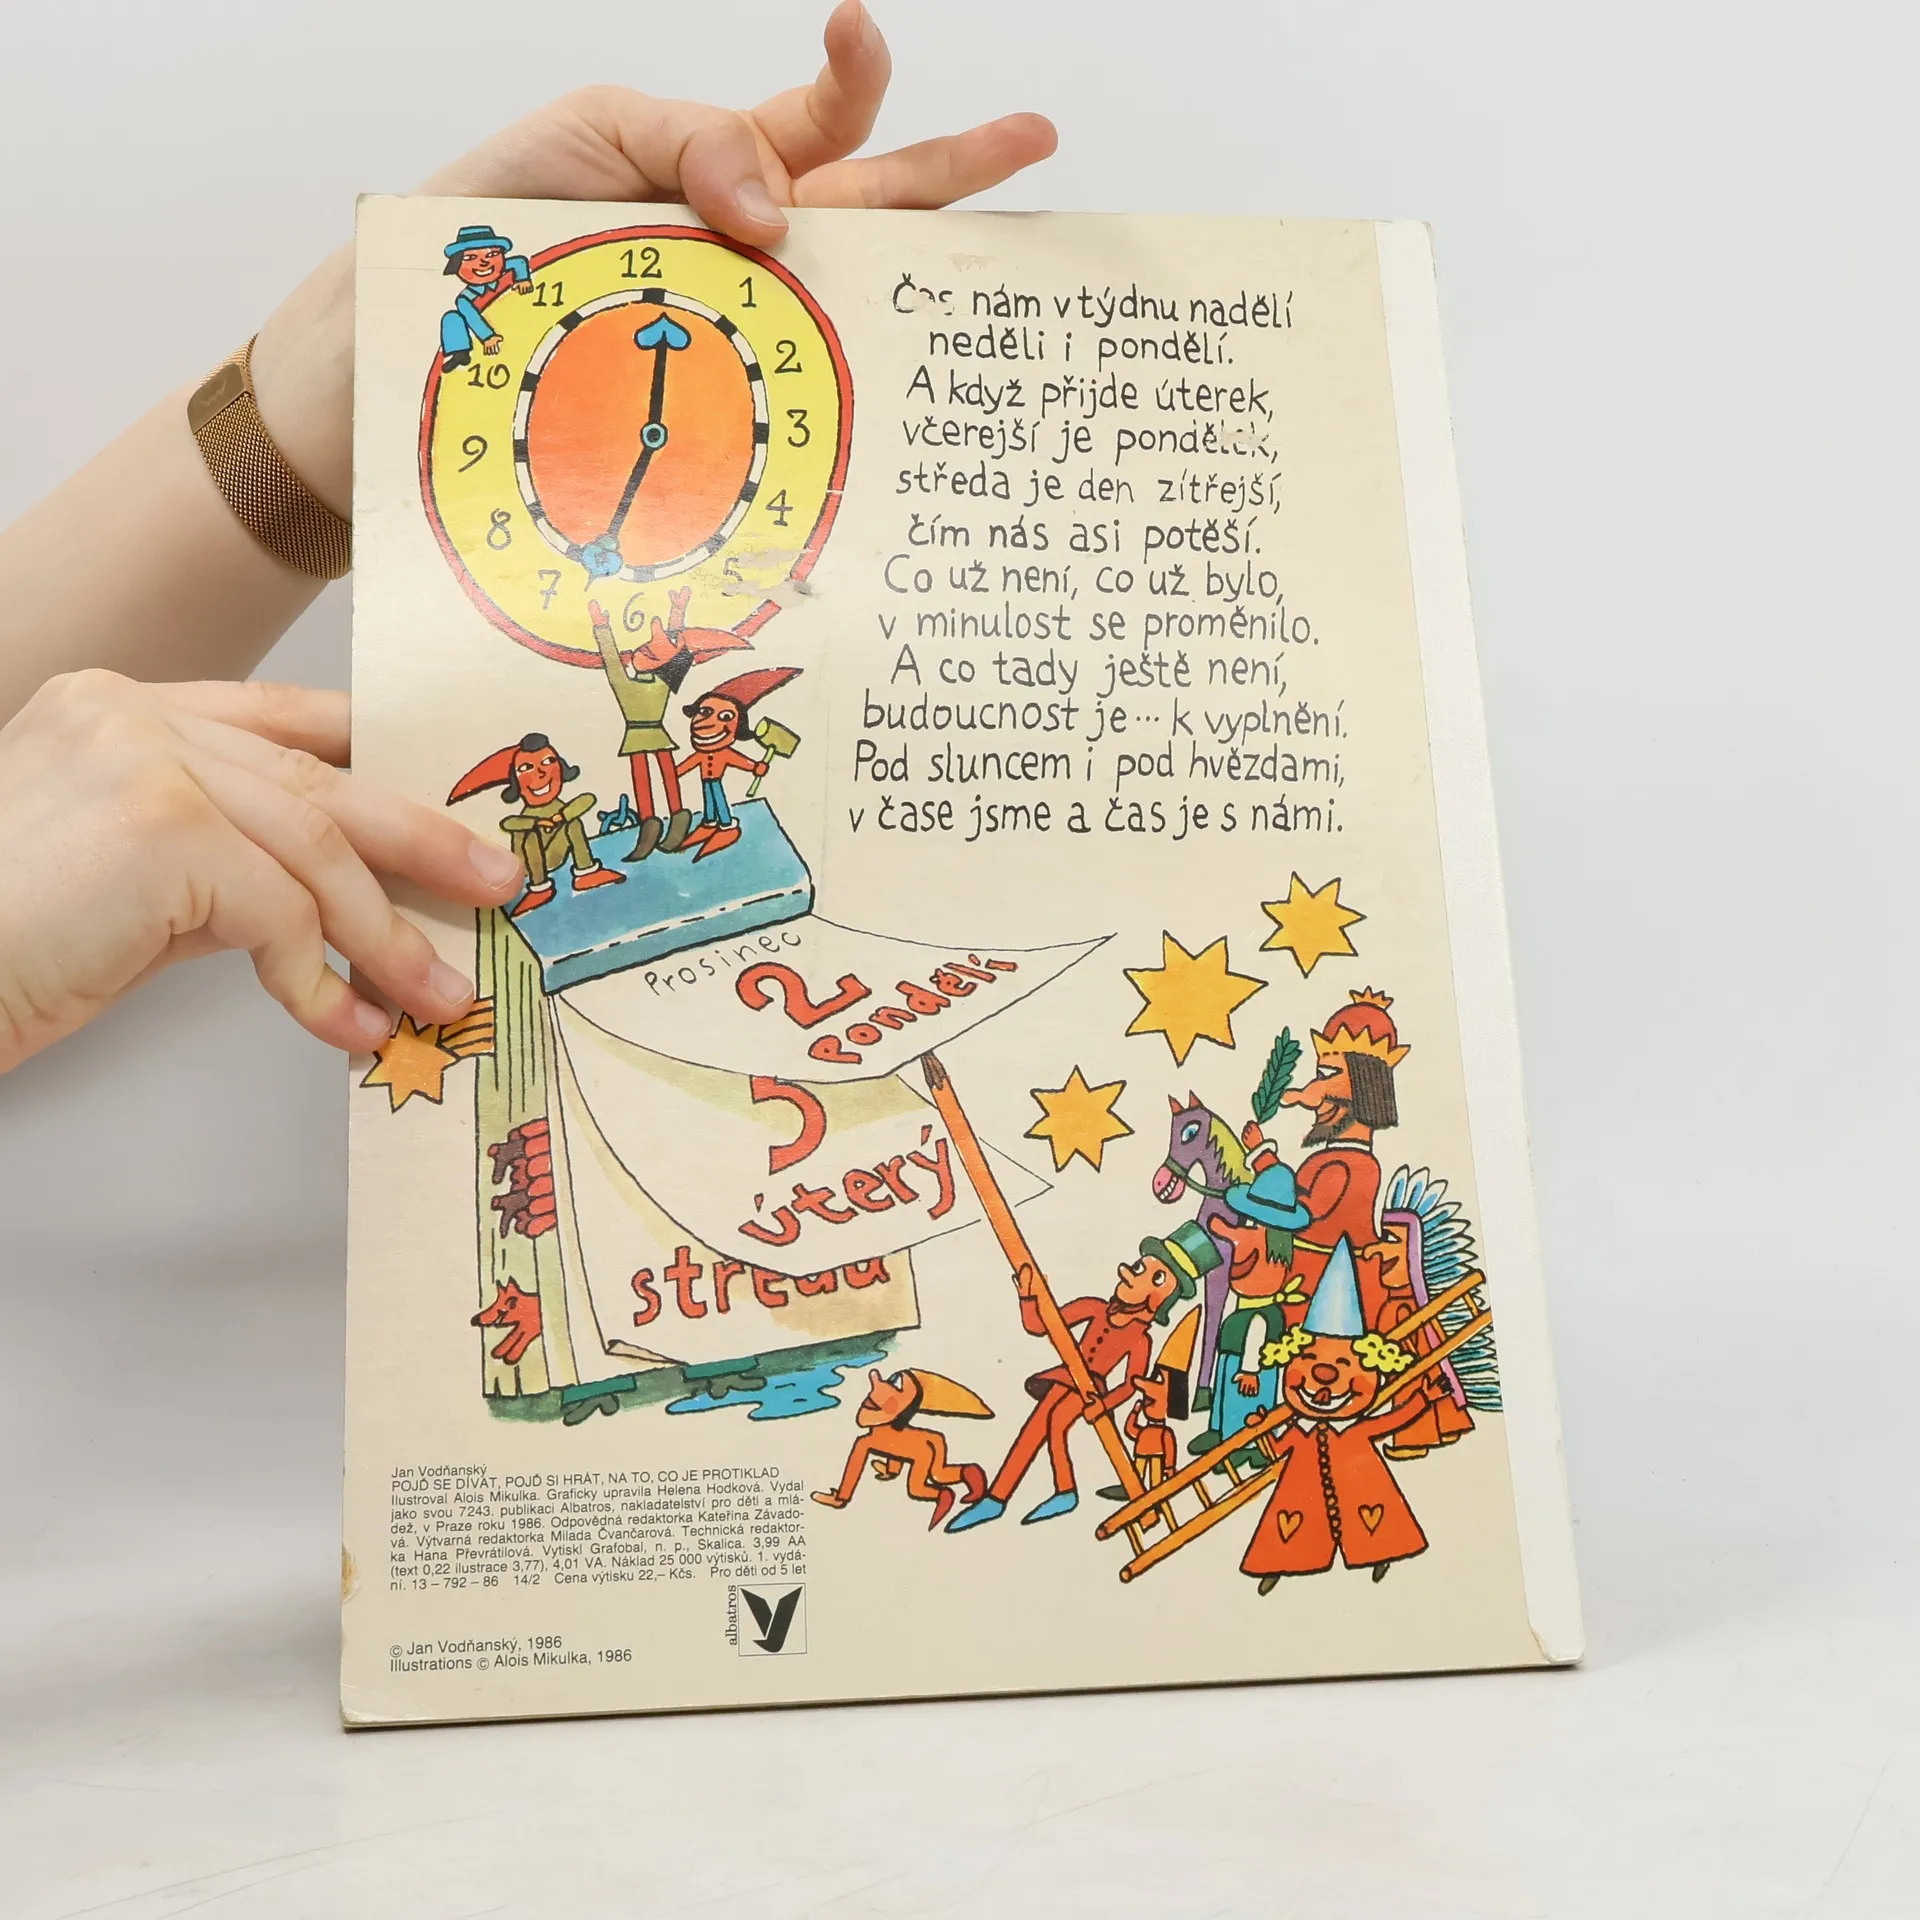 12
11
1
10
2
9
3
8
4
7
5
6
Čas nám v týdnu nadělí
neděli i pondělí.
A když přijde úterek,
včerejší je pondělek,
středa je den zítřejší,
čím nás asi potěší.
Co už není, co už bylo,
v minulost se proměnilo.
A co tady ještě není,
budoucnost je... k vyplnění.
Pod sluncem i pod hvězdami,
v čase jsme a čas je s námi.
Prosinec
2
pondělí
úterý
středa
Jan Vodňanský
POJĎ SE DÍVAT, POJĎ SI HRÁT, NA TO, CO JE PROTIKLAD
Ilustroval Alois Mikulka. Graficky upravila Helena Hodková. Vydal
jako svou 7243. publikaci Albatros, nakladatelství pro děti a mlá-
dež, v Praze roku 1986. Odpovědná redaktorka Kateřina Závado-
vá. Výtvarná redaktorka Milada Čvančarová. Technická redaktor-
ka Hana Převrátilová. Vytiskl Grafobal, n. p., Skalica. 3,99 AA
(text 0,22 ilustrace 3,77), 4,01 VA. Náklad 25 000 výtisků. 1. vydá-
ní. 13 – 792 – 86 14/2 Cena výtisku 22,– Kčs. Pro děti od 5 let
albatros
© Jan Vodňanský, 1986
Illustrations © Alois Mikulka, 1986